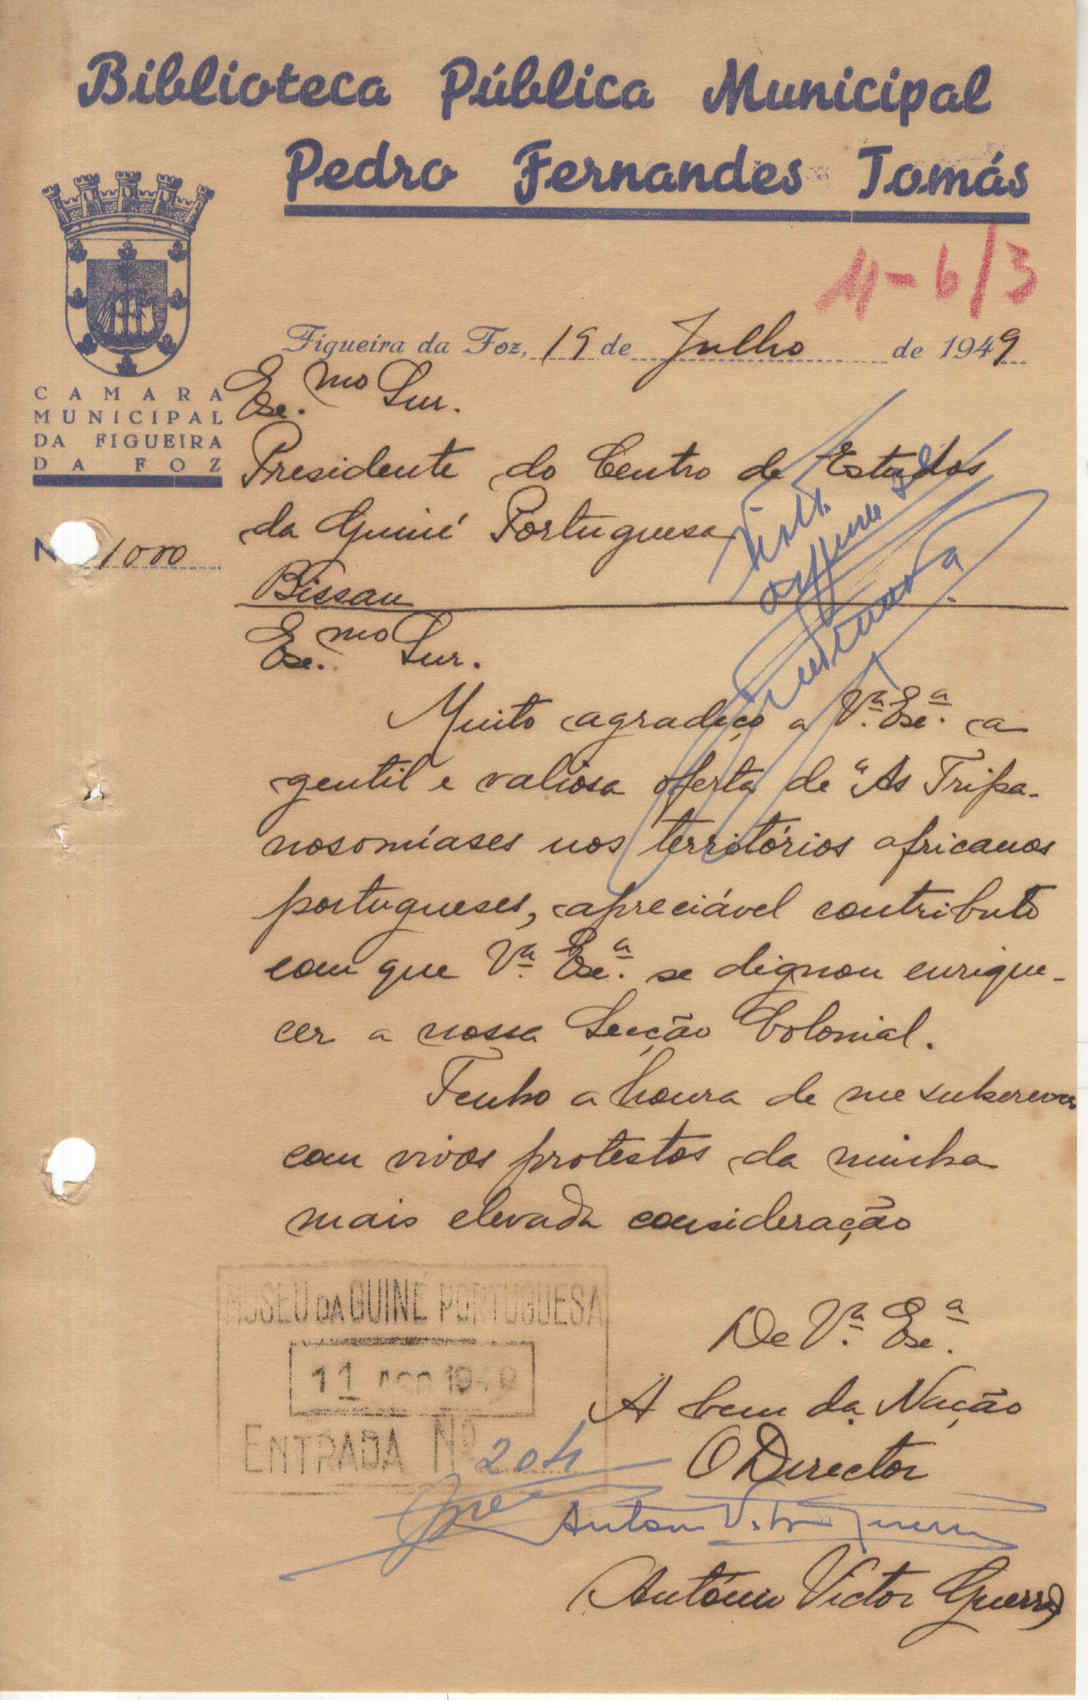 Biblioteca Pública Municipal
Pedro Fernandes Tomás
11-6/3
Figueira da Foz, 19 de Julho de 1949
CAMARA
MUNICIPAL
DA FIGUEIRA
DA FOZ
Nº 1000
Exc.mo Snr.
Presidente do Centro de Estudos
da Guiné Portuguesa
Bissau
Exc.mo Snr.
Muito agradeço a V.ª Exc.ª a
gentil e valiosa oferta de "As Tripa-
nosomíases nos territórios africanos
portugueses, apreciável contributo
com que V.ª Exc.ª se dignou enrique-
cer a nossa Secção Colonial.
Tenho a honra de me subscrever
com vivos protestos da minha
mais elevada consideração
De V.ª Exc.ª
A bem da Nação
O Director
António Victor Guerra
António Victor Guerra
MUSEU DA GUINÉ PORTUGUESA
11 AGO 1949
ENTRADA Nº 204